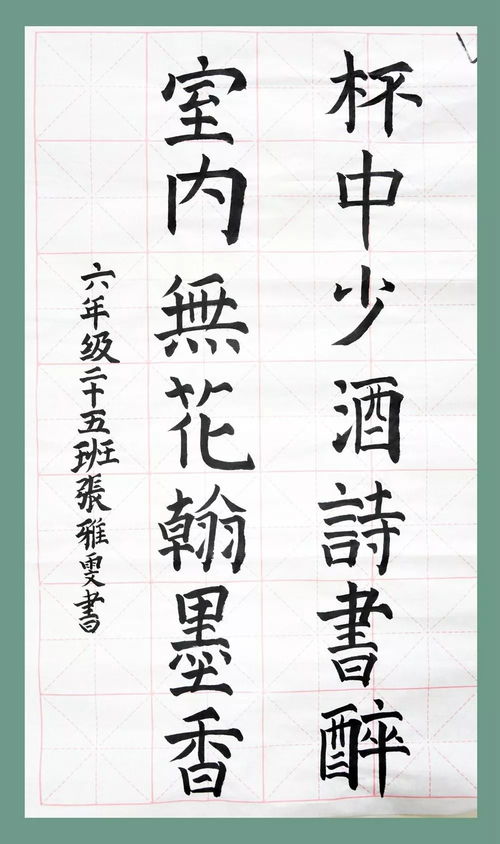 杯中少酒詩書醉
室内無花翰墨香
六年级二十五班張雅雯書